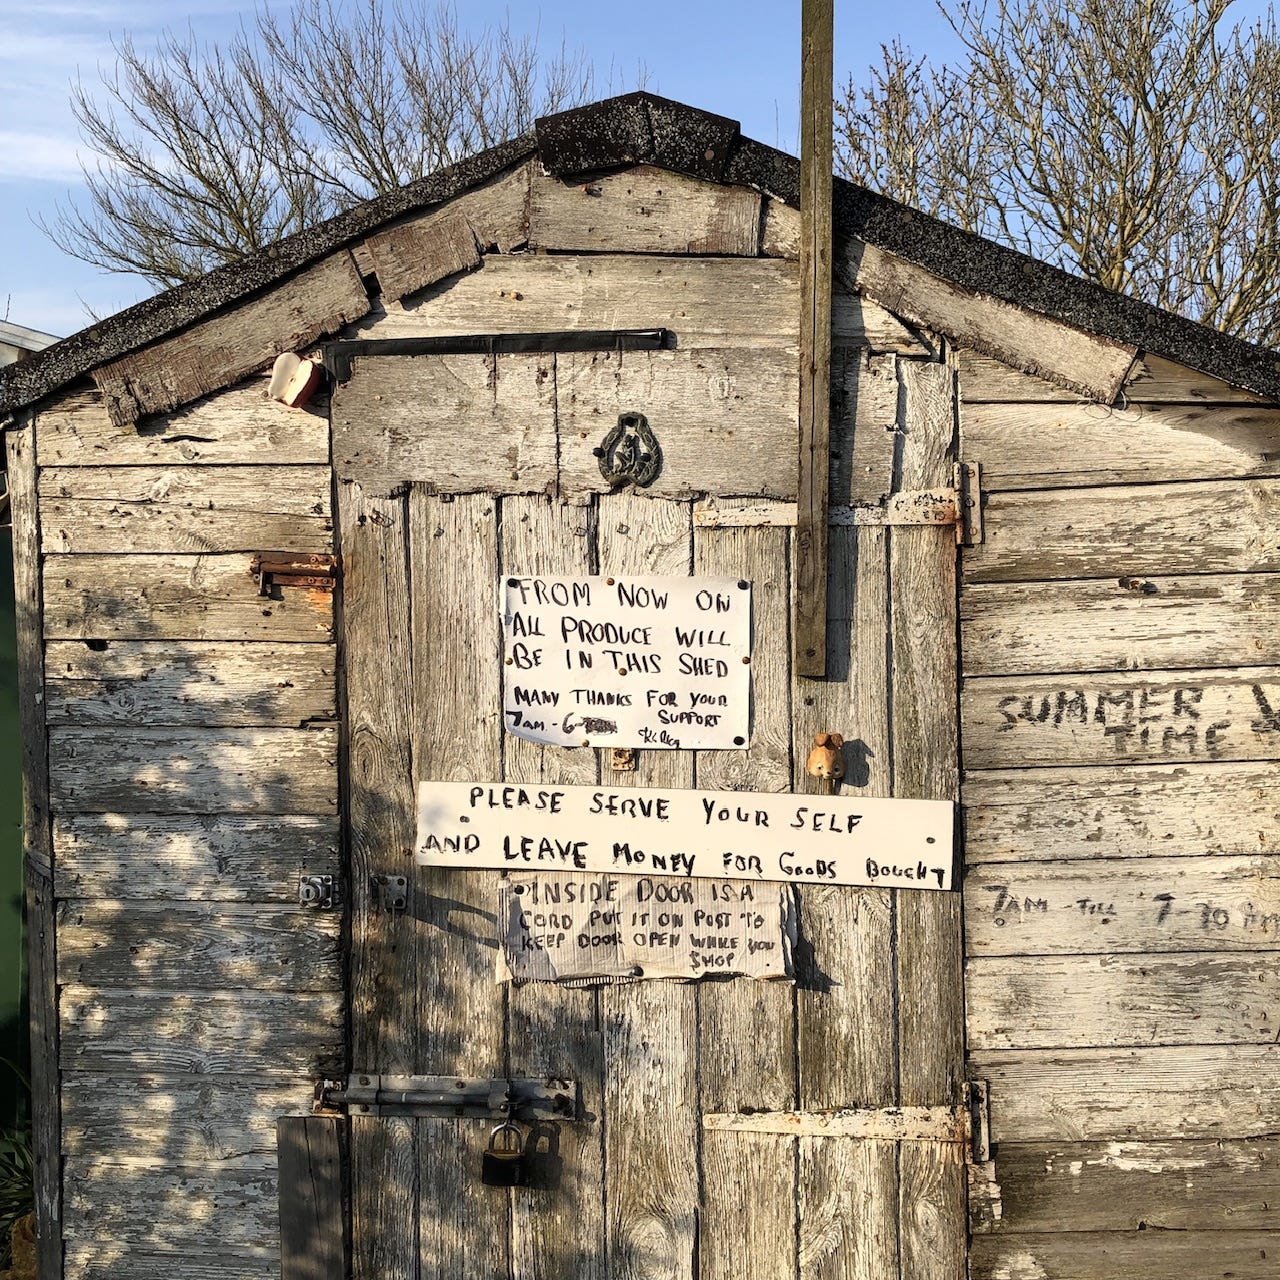 FROM NOW ON
ALL PRODUCE WILL
BE IN THIS SHED
MANY THANKS FOR YOUR
7AM.-6 SUPPORT
PLEASE SERVE YOUR SELF
AND LEAVE MONEY FOR GOODS BOUGHT
INSIDE DOOR IS A
CORD PUT IT ON POST TO
KEEP DOOR OPEN WHILE YOU
SHOP
SUMMER
TIME
7AM TILL 7-30